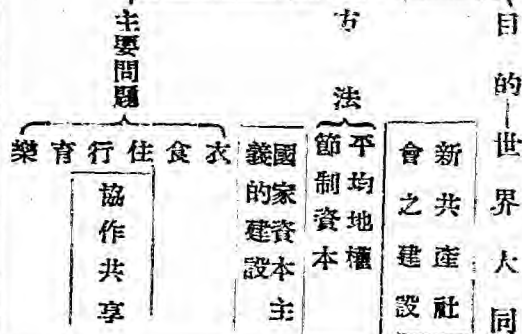 目的—世界大同
新共產社
會之建設
方法
平均地權
節制資本
國家資本主
義的建設
主要問題
衣食住行育樂
協作共享